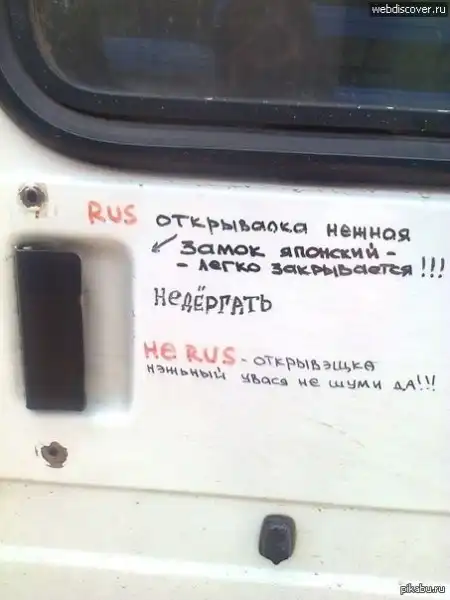 webdiscover.ru
RUS открывалка нежная
замок японский -
- легко закрывается!!!
НеДЁРГАТЬ
НЕ RUS - открывэщка
нэжьный увася не шуми да!!!
pikabu.ru